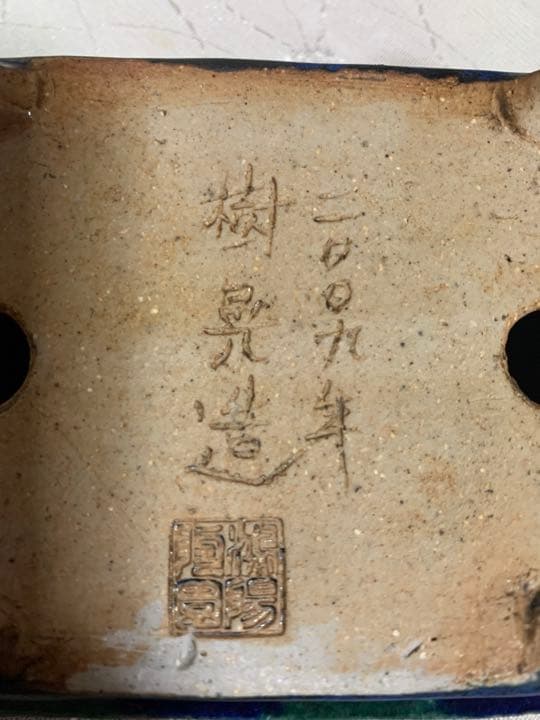 二〇〇九年
樹晃造